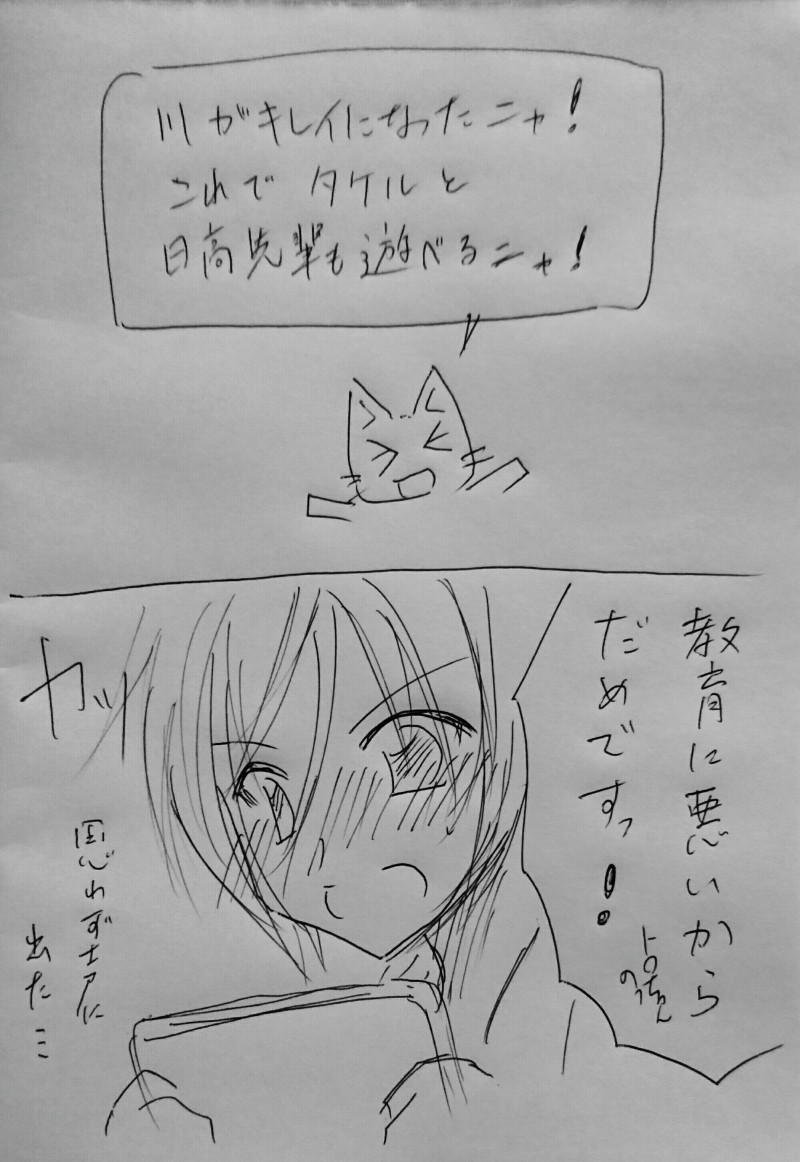 川がキレイになったニャ!
これで タケルと
日高先輩も遊べるニャ!
教育に悪いから
だめですっ!
トロちゃん
のっ
カッ
思わず声に
出た…